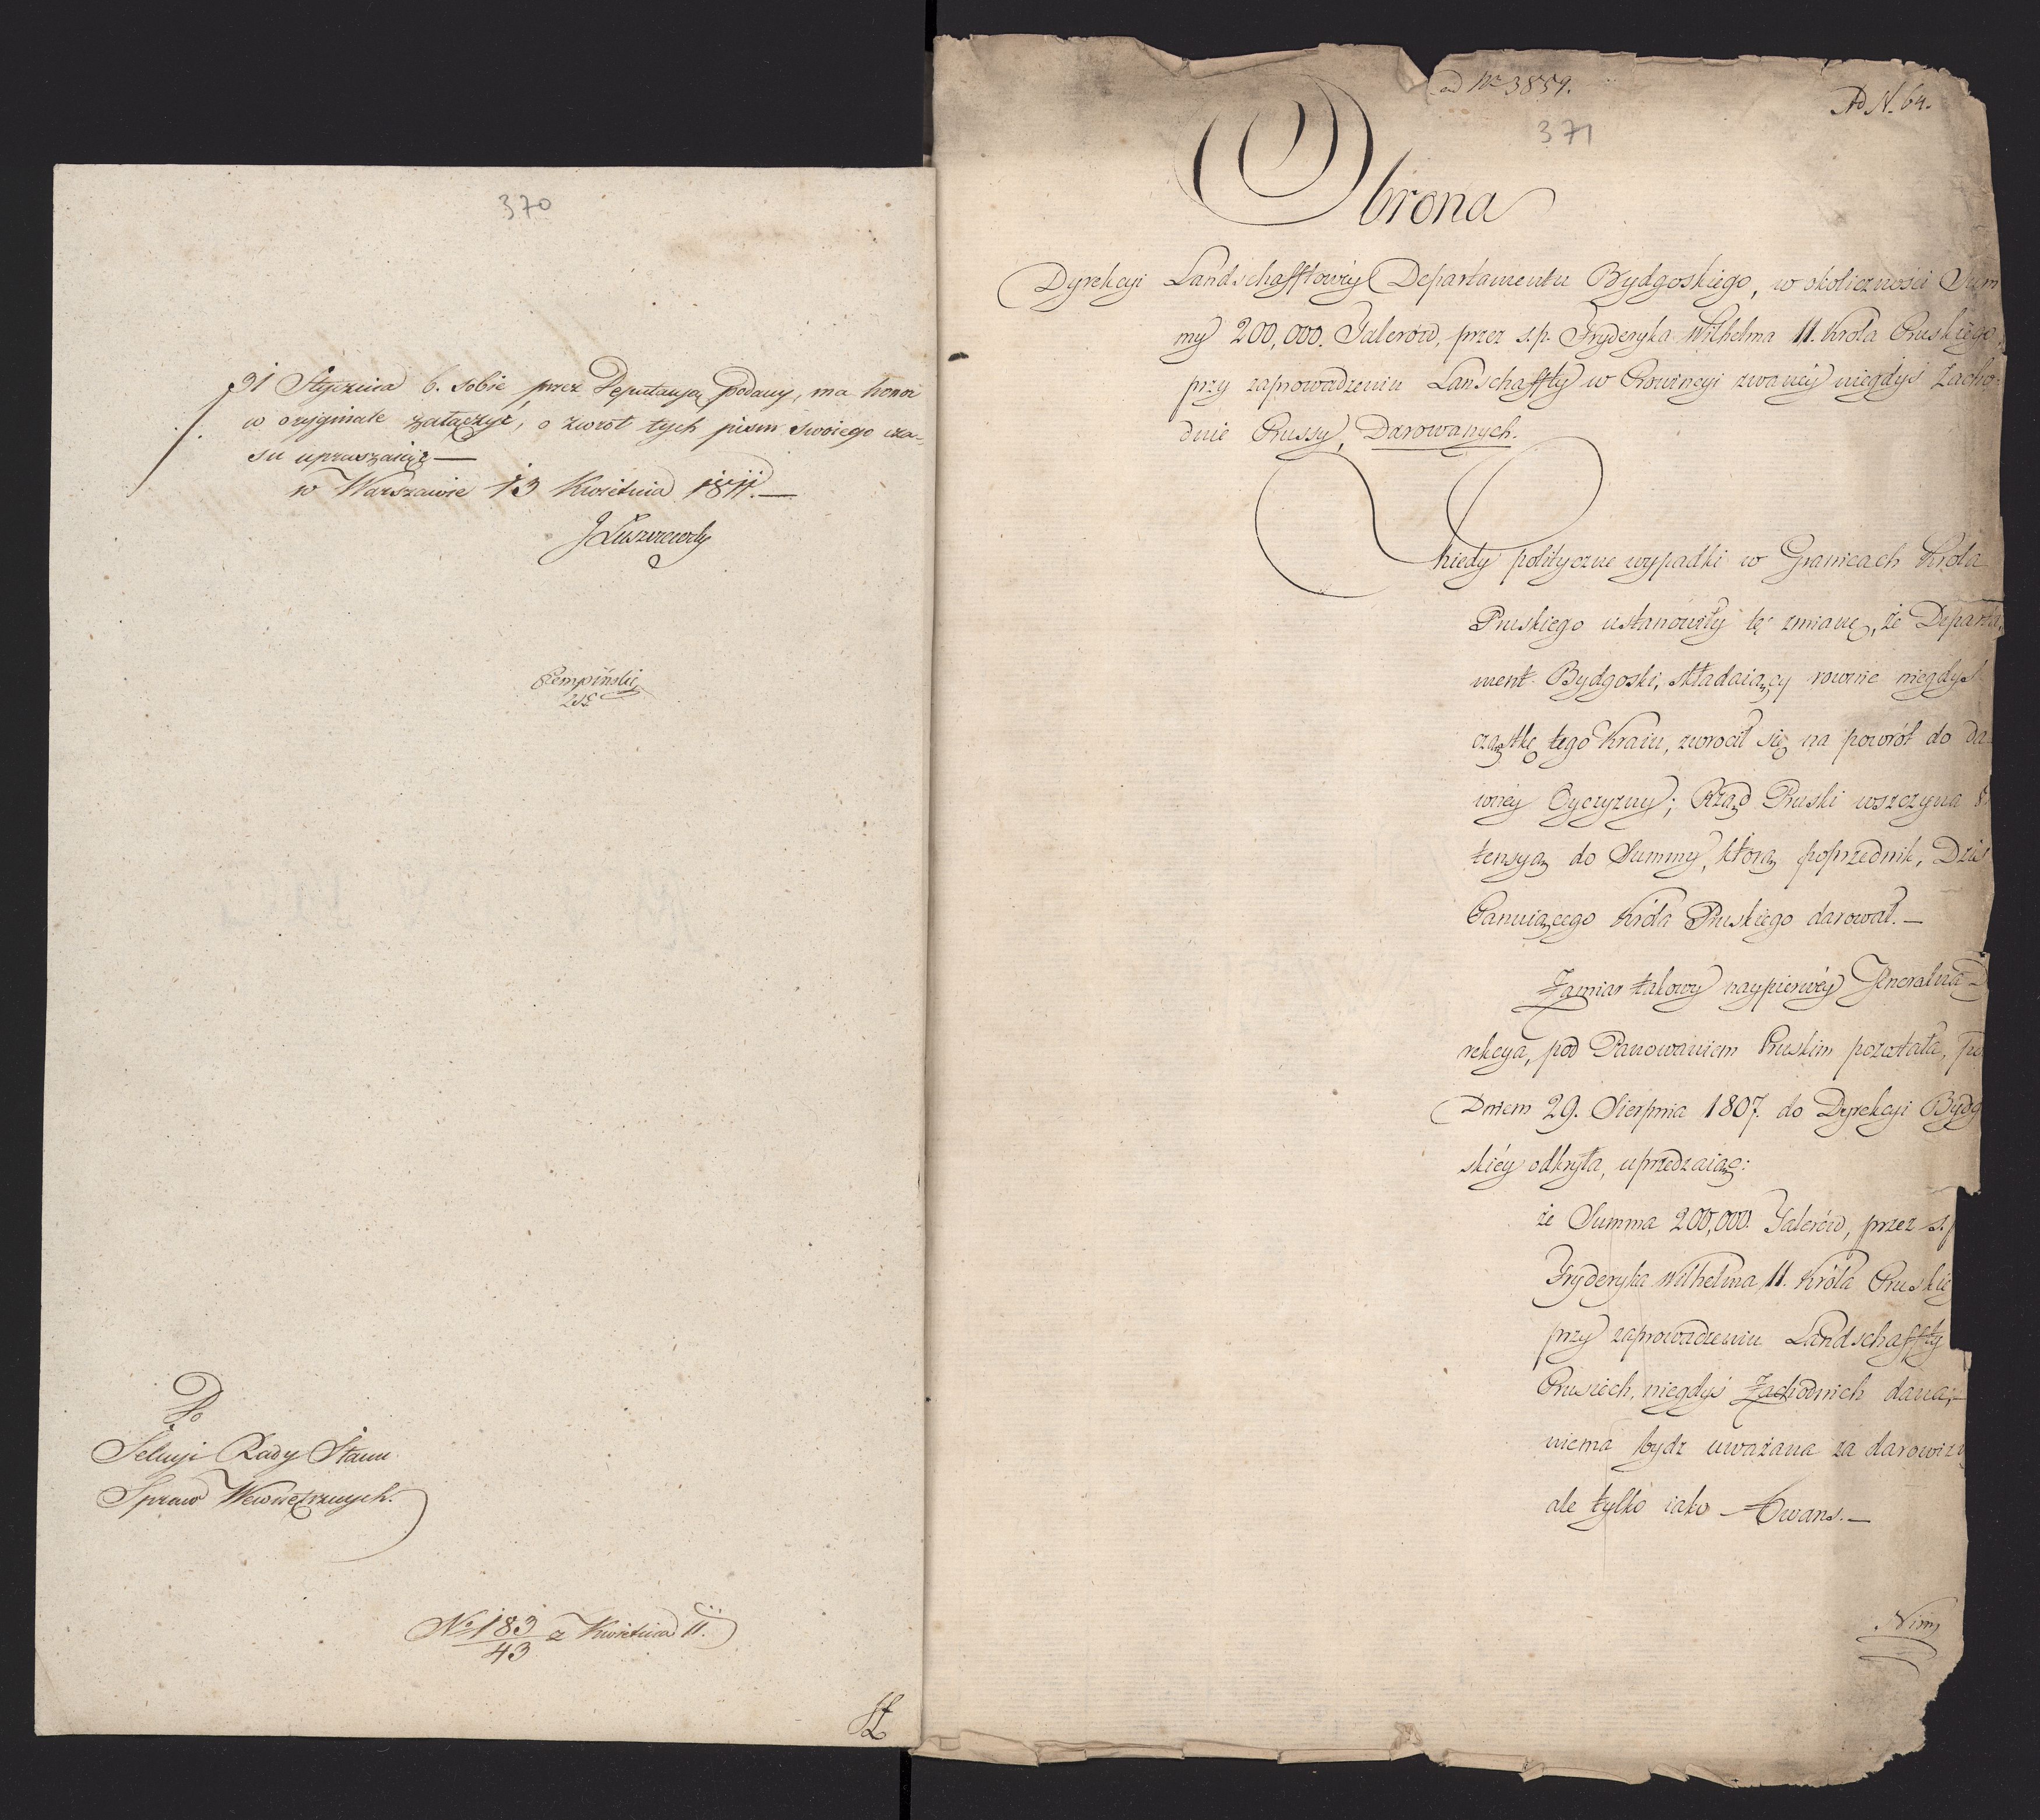 370
31 Stycznia b. sobie przez Deputacyą podany, ma honor
w oryginale załączyć, o zwrot tych pism swoiego cza-
su upraszaiąc —
w Warszawie 13 Kwietnia 1811. —
J Łuszczewski
Rempiński
Do
Sekcyi Rady Stanu
Spraw Wewnętrznych.
No 183/43 z Kwietnia 11.
ad No 3859.
Ad N. 64.
371
Obrona
Dyrekcyi Landschafftowéy Departamentu Bydgoskiego, w okoliczności Sum
my 200,000. Talerów, przez s.p. Fryderyka Wilhelma II. Króla Pruskiego,
przy zaprowadzeniu Lanschaffty w Prowincyi zwanéy niegdyś Zacho-
dnie Prussy, Darowanych.
Kiedy polityczne wypadki w Granicach Króla
Pruskiego ustanowiły tę zmianę, że Departa
ment Bydgoski, składaiący rownie niegdyś
cząstkę tego Kraiu, zwrocił się na powrót do da
wnéy Oyczyzny; Rząd Pruski wszczyna
tensyą do Summy, którą poprzednik, Dziś
Panuiącego Króla Pruskiego darował. —
Zamiar takowy naypierwéy Generalna D
rekcya, pod Panowaniem Pruskim pozostała, pod
Dniem 29. Sierpnia 1807. do Dyrekcyi Bydg
skiéy odkryła, uprzedzaiąc:
że Summa 200,000. Talerów, przez s.p
Fryderyka Wilhelma II. Króla Pruskie
przy zaprowadzeniu Landschaffty
Prusiech, niegdyś Zachodnich dana, —
niema bydź uważana za darowizn
ale tylko iako Awans. —
Nim